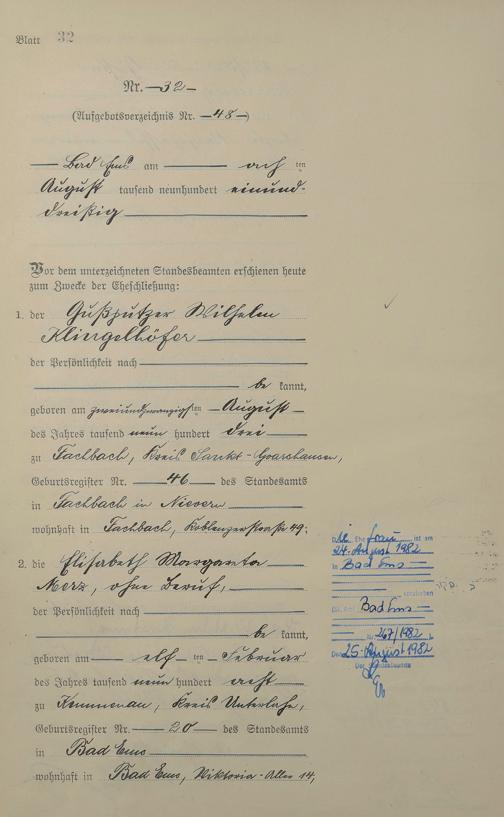 Blatt 32
Nr. 32
(Aufgebotsverzeichnis Nr. 48)
Bad Ems am acht ten
August tausend neunhundert einund-
dreißig
Vor dem unterzeichneten Standesbeamten erschienen heute
zum Zwecke der Eheschließung:
1. der Gußputzer Wilhelm
Klingelhöfer
der Persönlichkeit nach
be kannt,
geboren am zweiundzwanzigsten August
des Jahres tausend neun hundert drei
zu Fachbach, Kreis Sankt-Goarshausen,
Geburtsregister Nr. 46 des Standesamts
in Fachbach in Nievern
wohnhaft in Fachbach, Koblenzerstraße 49:
2. die Elisabeth Margareta
Merz, ohne Beruf,
der Persönlichkeit nach
be kannt,
geboren am elf ten Februar
des Jahres tausend neun hundert acht
zu Kemmenau, Kreis Unterlahn,
Geburtsregister Nr. 20 des Standesamts
in Bad Ems
wohnhaft in Bad Ems, Viktoria-Allee 14,
Ehefrau ist am
24. August 1982
in Bad Ems
verstorben
Bad Ems
Nr. 267/1982
Den 25. August 1982
Der Standesbeamte